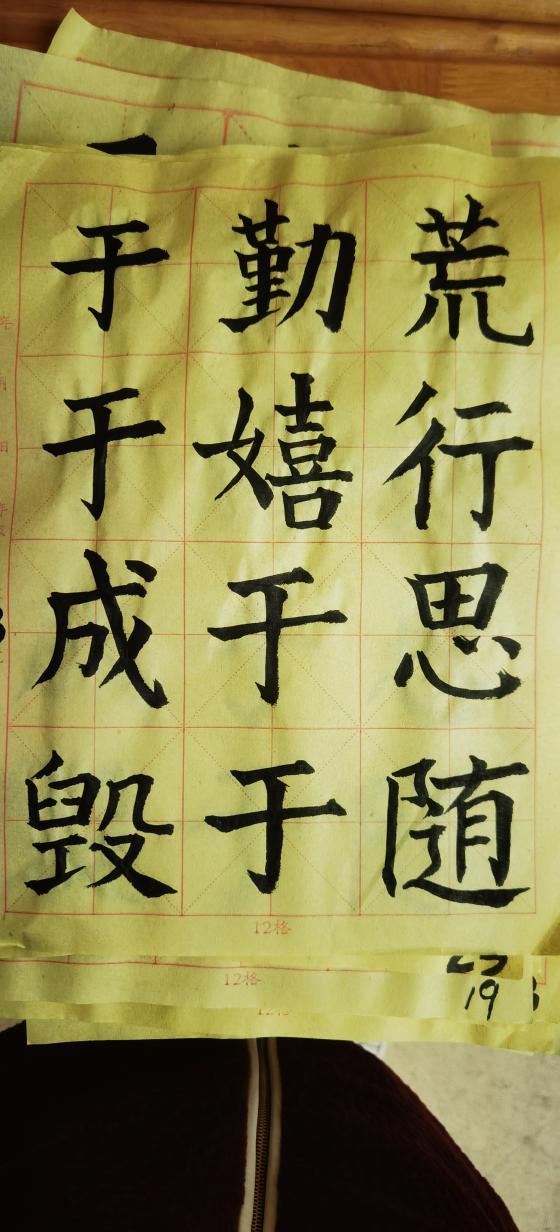 于勤荒
于嬉行
成于思
毁于随
12格
12格
19